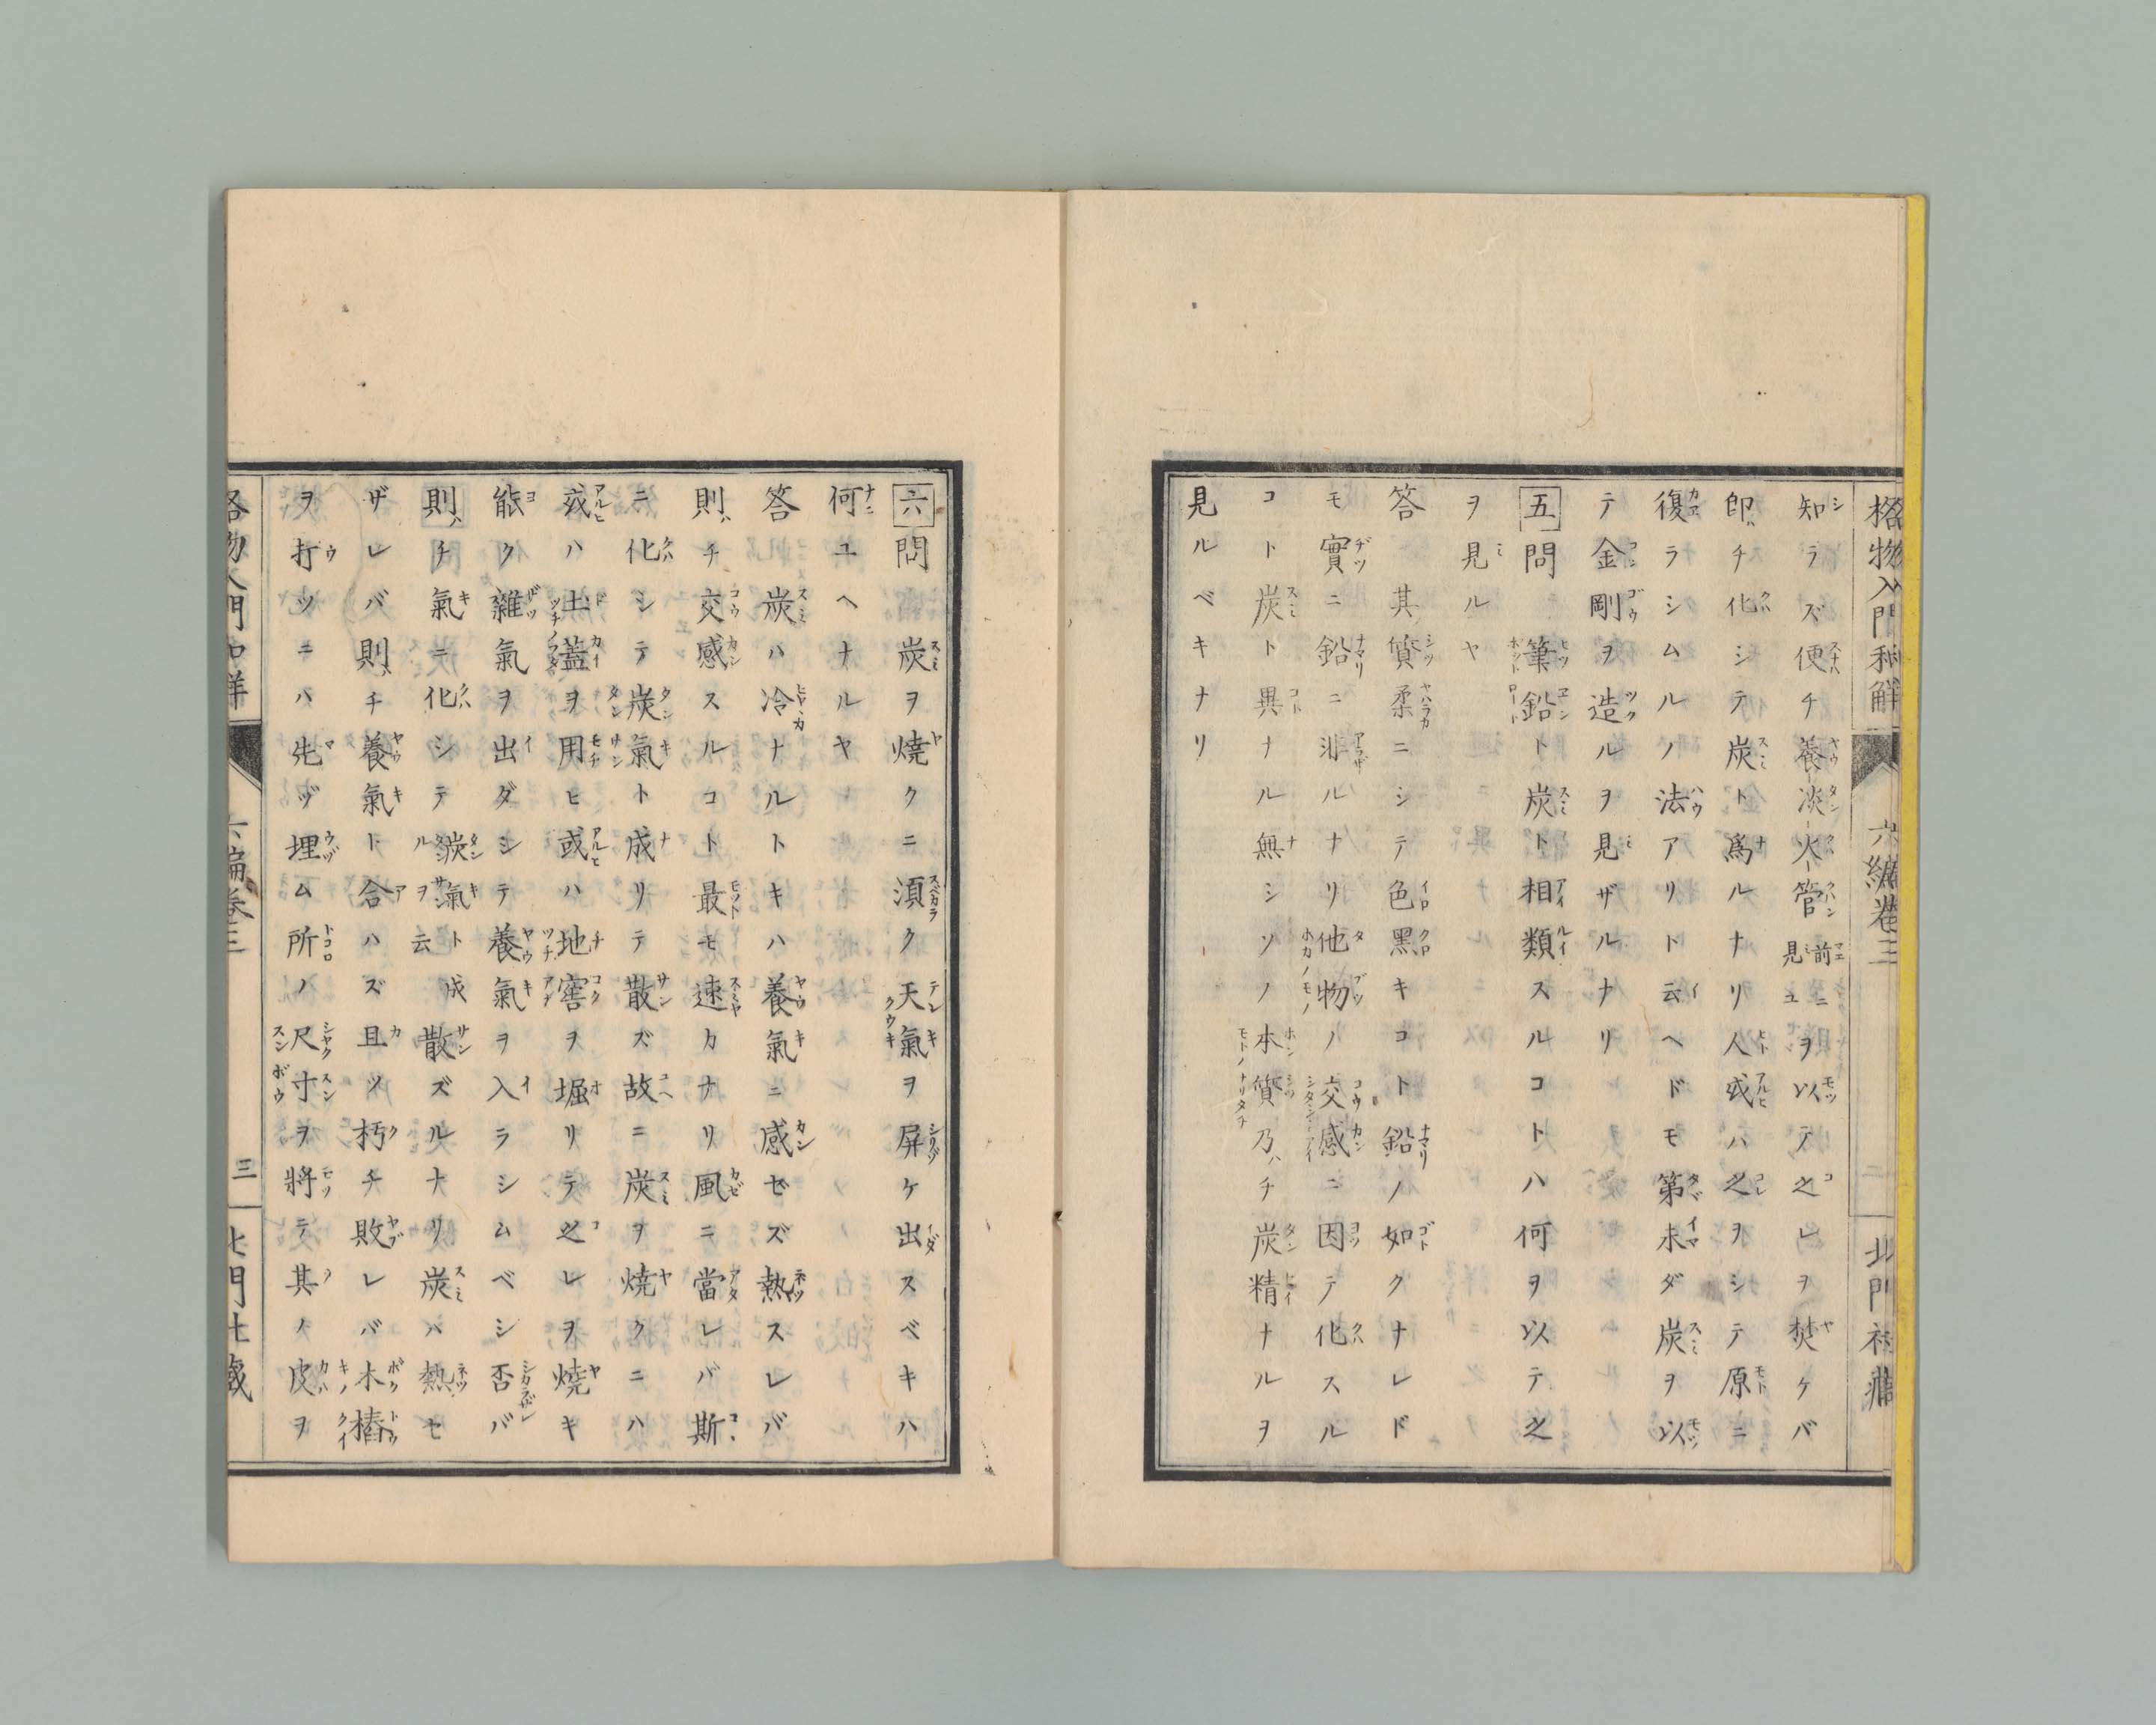 格物入門和解 六編卷三 二 北門社藏
知ラズ便チ養淡火管前ニ見ユヲ以テ之レヲ焚ケバ
即チ化シテ炭ト爲ルナリ人或ハ之ヲシテ原ニ
復ラシムルノ法アリト云ヘドモ第未ダ炭ヲ以
テ金剛ヲ造ルヲ見ザルナリ
五問 筆鉛ト炭ト相類スルコトハ何ヲ以テ之
ヲ見ルヤ
答 其質柔ニシテ色黑キコト鉛ノ如クナレド
モ實ニ鉛ニ非ルナリ他物ノ交感ニ因テ化スル
コト炭ト異ナル無シソノ本質乃チ炭精ナルヲ
見ルベキナリ
六問 炭ヲ燒クニ須ク天氣ヲ屏ケ出スベキハ
何ユヘナルヤ
答 炭ハ冷ナルトキハ養氣ニ感ゼズ熱スレバ
則チ交感スルコト最モ速カナリ風ニ當レバ斯
ニ化シテ炭氣ト成リテ散ズ故ニ炭ヲ燒クニハ
或ハ土蓋ヲ用ヒ或ハ地窖ヲ堀リテ之レヲ燒キ
能ク雜氣ヲ出ダシテ養氣ヲ入ラシムベシ否バ
則チ氣ニ化シテ炭氣ト成ル炭サンヲ云散ズルナリ炭ハ熱セ
ザレバ則チ養氣ト合ハズ且ツ朽チ敗レバ木樁
ヲ打ツニハ先ヅ埋ム所ノ尺寸ヲ將テ其ノ皮ヲ
格物入門和解 六編卷三 三 北門社藏